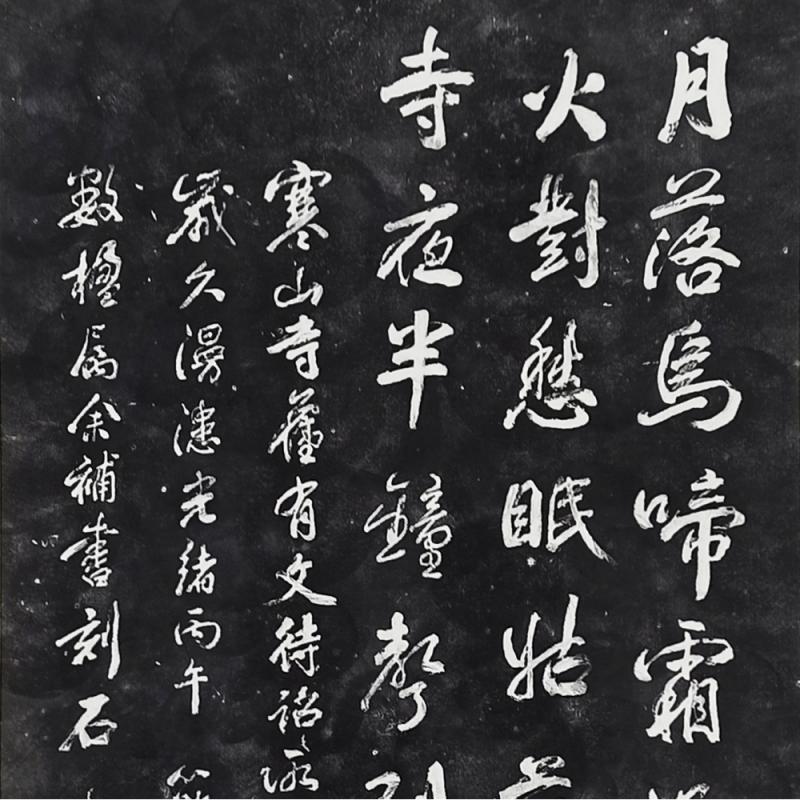 月落烏啼霜
火對愁眠姑
寺夜半鐘聲到
寒山寳舊有文待詔
歲久漫漶光緒丙午
數楹屬余補書刻石